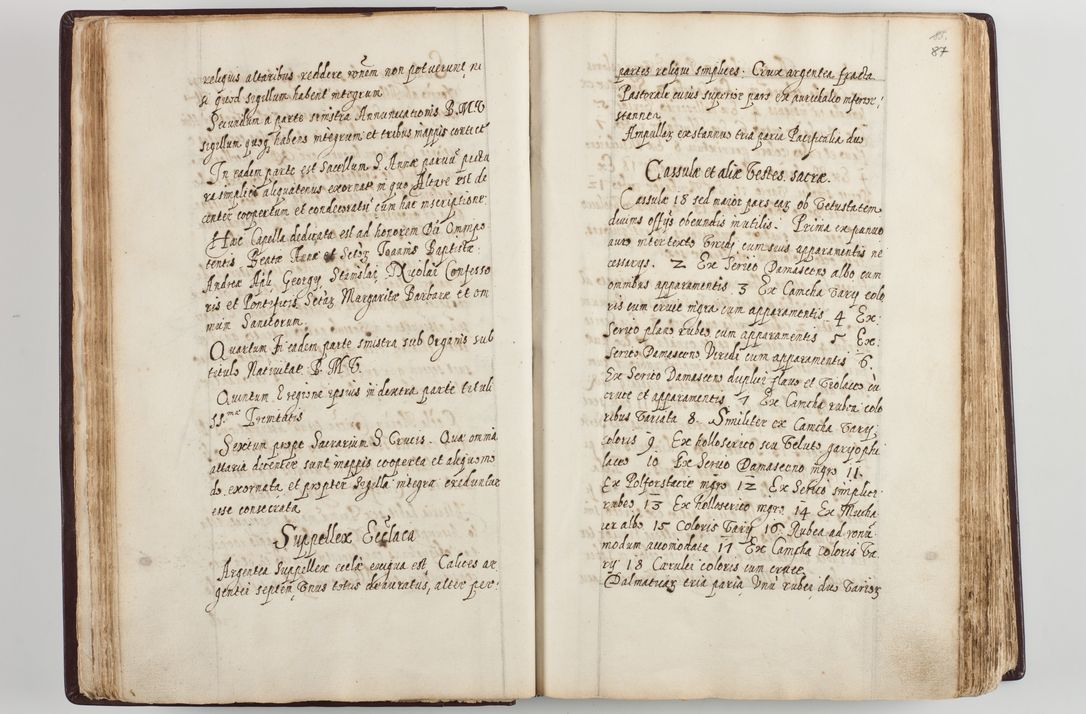 reliquis altaribus reddere rōnem non potuerunt, ni
si quod sigillum habent integrum
Secundum a parte sinistra Annunciationis B.M.V.
sigillum quoq habens integrum et tribus mappis contect
In eadem parte est Sacellum S. Annæ parvū pictu
ra simplici aliquatenus exornat in quo Altare est de
center coopertum et condecoratū cum hac inscriptione:
Hæc Capella dedicata est ad honorem Dei Omnipo
tentis Beatæ Annæ et Sctor Joannis Baptistæ
Andreæ Apli, Georgy, Stanislai, Nicolai Confesso
ris et Pontificis, Sctar Margaritæ Barbaræ et om
nium Sanctorum.
Quartum In eadem parte sinistra sub Organis sub
titulo Nativitat B.M.V.
Quintum E regione ipsius in dextra parte tituli
SS.mæ Trinitatis
Sextum prope Sacrarium S. Crucis. Quæ omnia
altaria decenter sunt mappis cooperta et aliquomo
do exornata, et propter Sigilla integra creduntur
esse consecrata
Suppellex Ecclaca
Argentea Suppellex ecclæ exigua est, Calices ar
gentei septem, Unus totus deauratus, alter per:
88.
87
partes reliqui simplices. Crux argentea fracta
Pastorale cuius superior pars ex aurichalco inferior,
stannea
Ampullæ ex stanno tria paria Pacificalia duo
Cassulæ et aliæ Vestes sacræ.
Cassulæ 18 sed maior pars ear ob Vetustatem
divinis offys obeundis inutilis. Prima ex panno
auro intertexto Viridi cum suis apparamentis ne
cessarys. 2 Ex Serico Damasceno albo cum
omnibus apparamentis 3 Ex Camcha Vary colo
ris cum cruce nigra cum apparamentis 4 Ex
Serico plano rubeo cum apparamentis 5 Ex
Serico Damasceno Viridi cum apparamentis 6.
Ex Serico Damasceno duplici flavo et Violaceo cū
cruce et apparamentis 7 Ex Camcha rubea colo
ribus Variata 8. Similiter ex Camcha Vary
coloris 9. Ex holloserico seu Veluto garyophi
laceo 10 Ex Serico Damasceno nigro 11.
Ex Polforstacie nigro 12 Ex Serico simplici
rubeo 13 Ex holloserico nigro 14 Ex Mucha
er albo 15 Coloris Vary 16 Rubea ad ronā
modum accomodata 17 Ex Camcha coloris Va
ry 18 Cærulei coloris cum cruce
Dalmaticar tria paria, Unū rubei, duo Varior